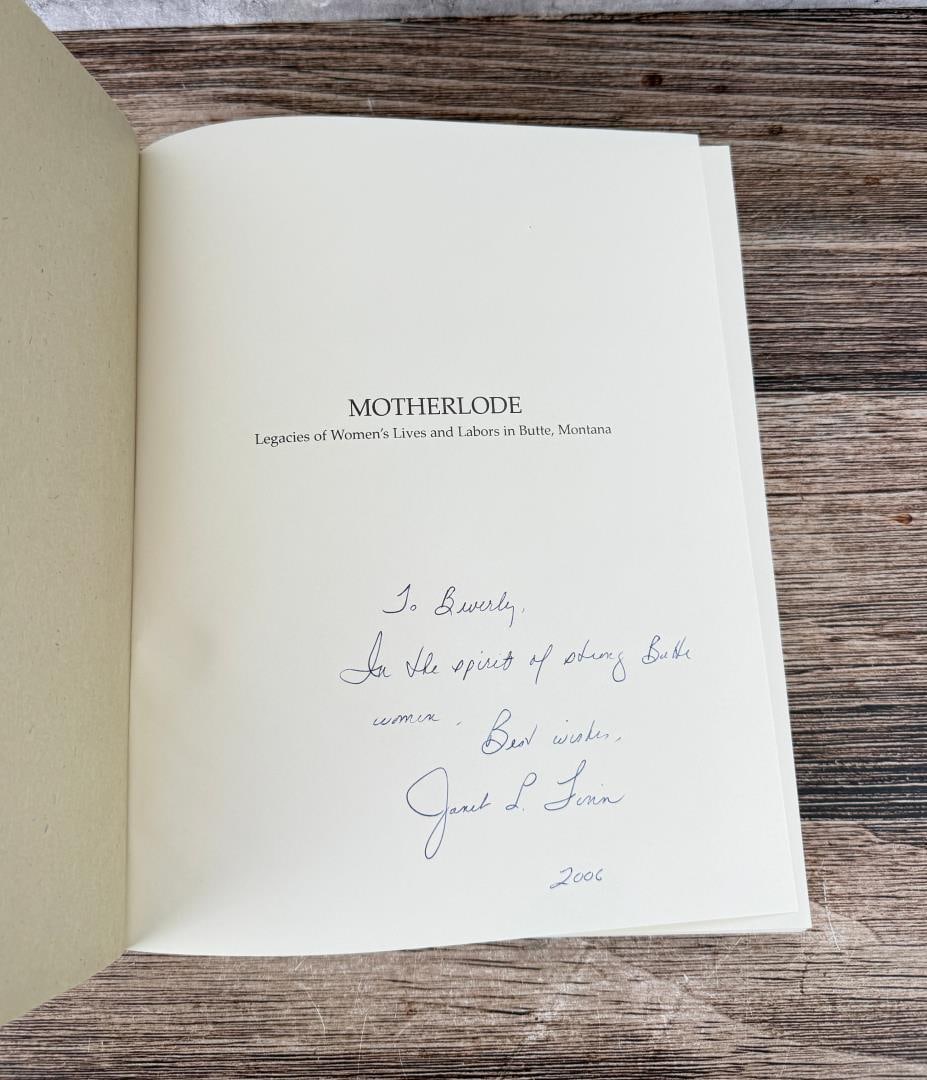 MOTHERLODE
Legacies of Women's Lives and Labors in Butte, Montana
To Beverly,
In the spirit of strong Butte
women. Best wishes,
Janet L. Finn
2006